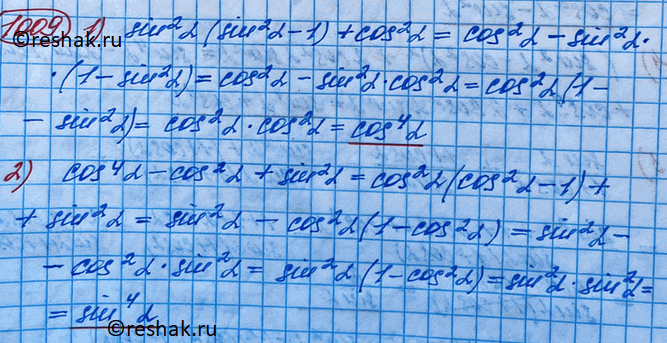 1009 1) sin²α (sin²α-1) + cos²α = cos²α - sin²α·
reshak.ru
·(1-sin²α) = cos²α - sin²α·cos²α = cos²α(1-
- sin²α) = cos²α·cos²α = cos⁴α
2) cos⁴α - cos²α + sin²α = cos²α(cos²α-1) +
+ sin²α = sin²α - cos²α(1-cos²α) = sin²α -
- cos²α·sin²α = sin²α(1-cos²α) = sin²α·sin²α =
= sin⁴α
reshak.ru